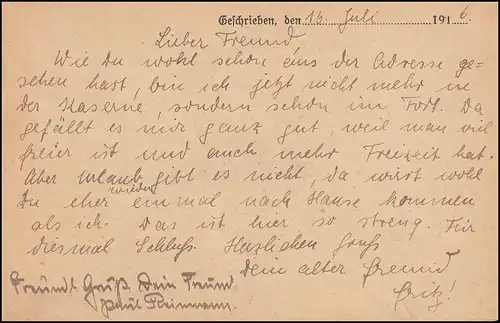 Geschrieben, den 16. Juli 1916.
Lieber Freund,
Wie Du wohl schon aus der Adresse ge-
sehen hast, bin ich jetzt nicht mehr in
der Kaserne, sondern schon im Fort. Da
gefällt es mir ganz gut, weil man viel
freier ist und auch mehr Freizeit hat.
Aber Urlaub gibt es nicht, da wirst wohl
Du eher wieder einmal nach Hause kommen
als ich. Das ist hier so streng. Für
diesmal Schluß. Herzlichen Gruß
Dein alter Freund
Fritz!
Freundl. Gruß. Dein Freund
Paul Reinmann.